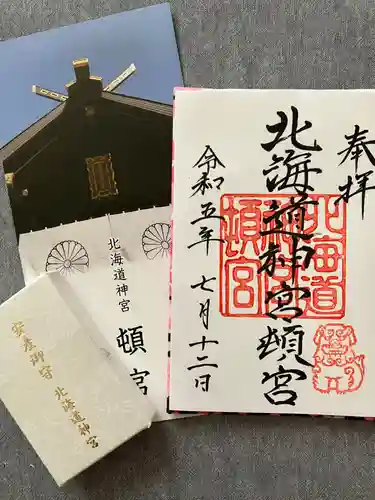 奉拝
北海道神宮頓宮
令和五年七月十二日
北海道
神宮
頓宮
北海道神宮
頓宮
安産御守
北海道神宮